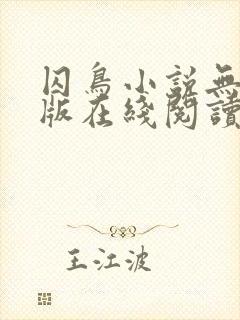 囚鳥小説無
版在綫閱讀
王江波